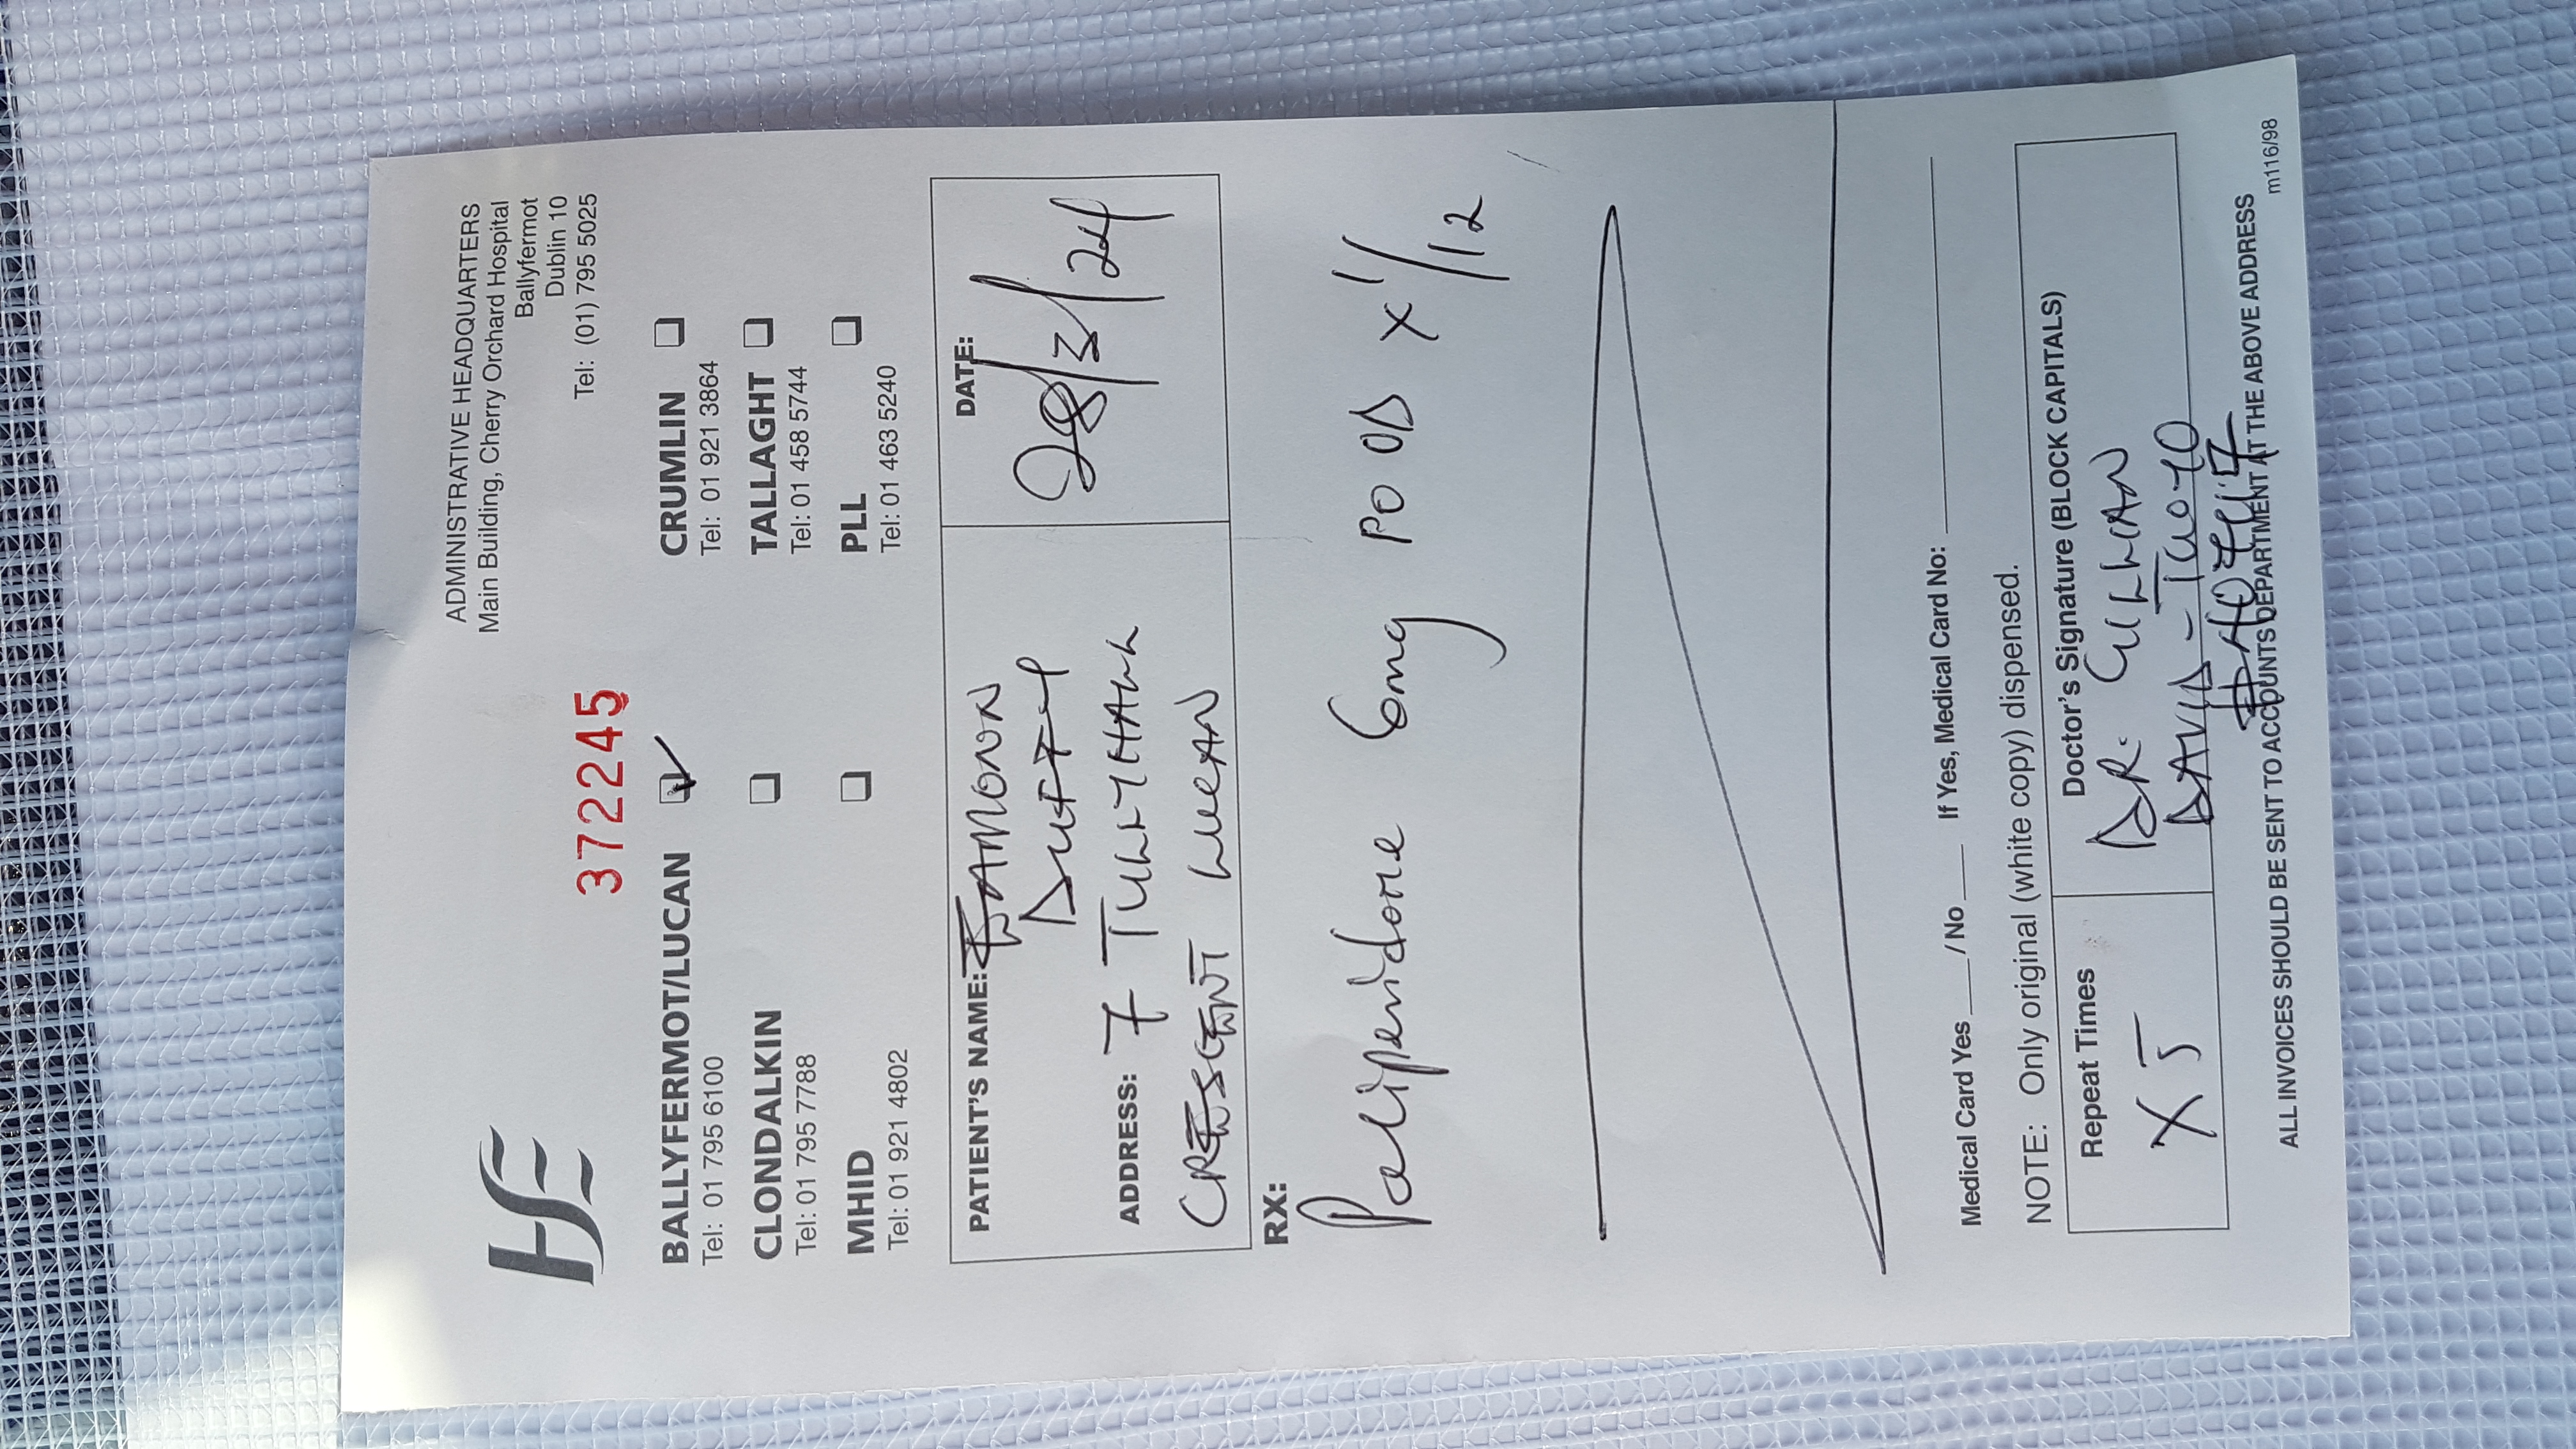 HSE
ADMINISTRATIVE HEADQUARTERS
Main Building, Cherry Orchard Hospital
Ballyfermot
Dublin 10
Tel: (01) 795 5025
372245
BALLYFERMOT/LUCAN
Tel: 01 795 6100
CRUMLIN
Tel: 01 921 3864
CLONDALKIN
Tel: 01 795 7788
TALLAGHT
Tel: 01 458 5744
MHID
Tel: 01 921 4802
PLL
Tel: 01 463 5240
PATIENT'S NAME: EAMONN
DUFFY
DATE:
28/3/24
ADDRESS: 7 TULLYHALL
CRESCENT LUCAN
RX:
Paliperidone 6mg PO OD x 1/12
Medical Card Yes ____ / No ____ If Yes, Medical Card No: ____
NOTE: Only original (white copy) dispensed.
Repeat Times
X 5
Doctor's Signature (BLOCK CAPITALS)
DR. GILLIAN
ALL INVOICES SHOULD BE SENT TO ACCOUNTS DEPARTMENT AT THE ABOVE ADDRESS
m116/98